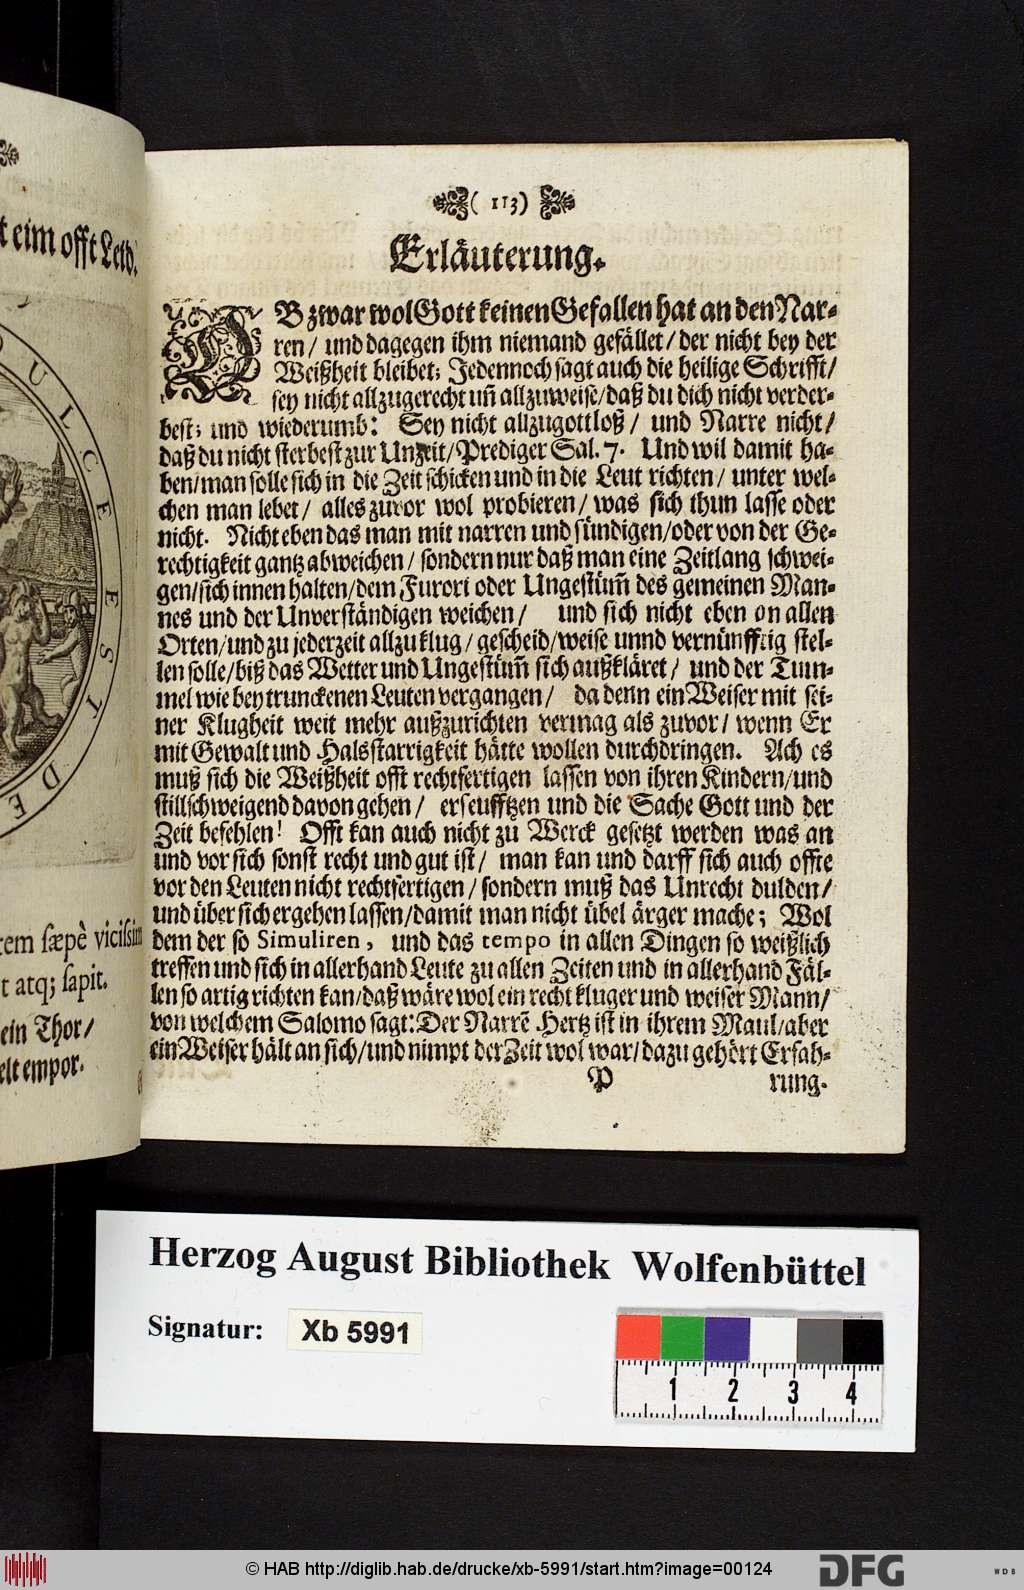 t eim offt Leid.
DULCE EST DE
tem sæpè vicissim
t atq; sapit.
ein Thor/
elt empor.
( 113 )
Erläuterung.
OB zwar wol Gott keinen Gefallen hat an den Nar-
ren/ und dagegen ihm niemand gefället/ der nicht bey der
Weißheit bleibet; Jedennoch sagt auch die heilige Schrifft/
sey nicht allzugerecht uñ allzuweise/ daß du dich nicht verder-
best; und wiederumb: Sey nicht allzugottloß/ und Narre nicht/
daß du nicht sterbest zur Unzeit/ Prediger Sal. 7. Und wil damit ha-
ben/ man solle sich in die Zeit schicken und in die Leut richten/ unter wel-
chen man lebet/ alles zuvor wol probieren/ was sich thun lasse oder
nicht. Nicht eben das man mit narren und sündigen/ oder von der Ge-
rechtigkeit gantz abweichen/ sondern nur daß man eine Zeitlang schwei-
gen/ sich innen halten/ dem Furori oder Ungestüm̃ des gemeinen Man-
nes und der Unverständigen weichen/ und sich nicht eben an allen
Orten/ und zu jederzeit allzu klug/ gescheid/ weise unnd vernünfftig stel-
len solle/ biß das Wetter und Ungestüm̃ sich außkläret/ und der Tum-
mel wie bey trunckenen Leuten vergangen/ da denn ein Weiser mit sei-
ner Klugheit weit mehr außzurichten vermag als zuvor/ wenn Er
mit Gewalt und Halsstarrigkeit hätte wollen durchdringen. Ach es
muß sich die Weißheit offt rechtfertigen lassen von ihren Kindern/ und
stillschweigend davon gehen/ erseufftzen und die Sache Gott und der
Zeit befehlen! Offt kan auch nicht zu Werck gesetzt werden was an
und vor sich sonst recht und gut ist/ man kan und darff sich auch offte
vor den Leuten nicht rechtfertigen/ sondern muß das Unrecht dulden/
und über sich ergehen lassen/ damit man nicht übel ärger mache; Wol
dem der so Simuliren, und das tempo in allen Dingen so weißlich
treffen und sich in allerhand Leute zu allen Zeiten und in allerhand Fäl-
len so artig richten kan/ daß wäre wol ein recht kluger und weiser Mann/
von welchem Salomo sagt: Der Narrẽ Hertz ist in ihrem Maul/ aber
ein Weiser hält an sich/ und nimpt der Zeit wol war/ dazu gehört Erfah-
P rung.
Herzog August Bibliothek Wolfenbüttel
Signatur: Xb 5991
1 2 3 4
© HAB http://diglib.hab.de/drucke/xb-5991/start.htm?image=00124
DFG
WDB